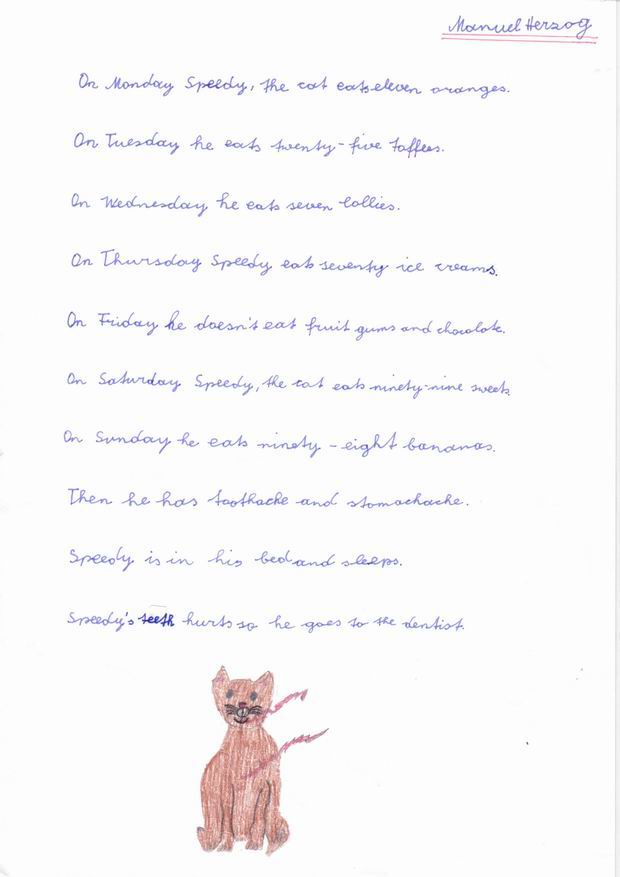 Manuel Herzog
On Monday Speedy, the cat eats eleven oranges.
On Tuesday he eats twenty-five toffees.
On Wednesday he eats seven lollies.
On Thursday Speedy eats seventy ice creams.
On Friday he doesn't eat fruit gums and chocolate.
On Saturday Speedy, the cat eats ninety-nine sweets.
On Sunday he eats ninety-eight bananas.
Then he has toothache and stomachache.
Speedy is in his bed and sleeps.
Speedy's teeth hurts so he goes to the dentist.